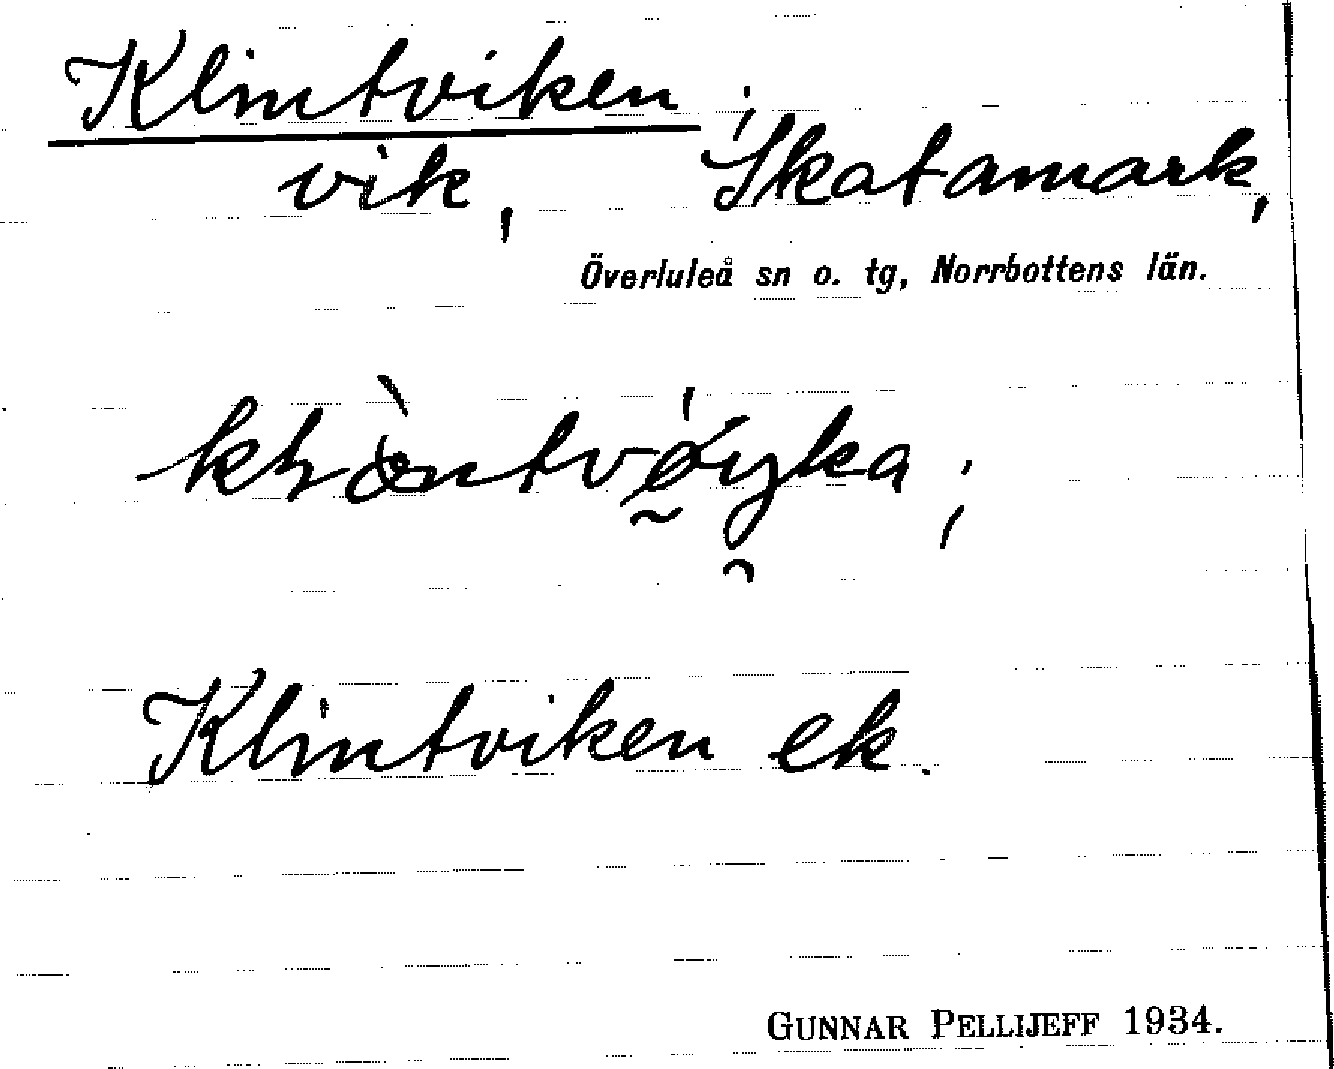 Klintviken ;
vik, Skatamark,
Överluleå sn o. tg, Norrbottens län.
Klintviken ek.
GUNNAR PELLIJEFF 1934.